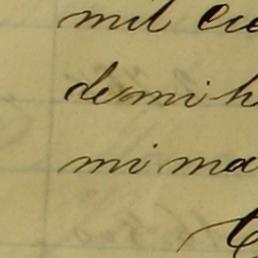 mil
de mi h
mi ma